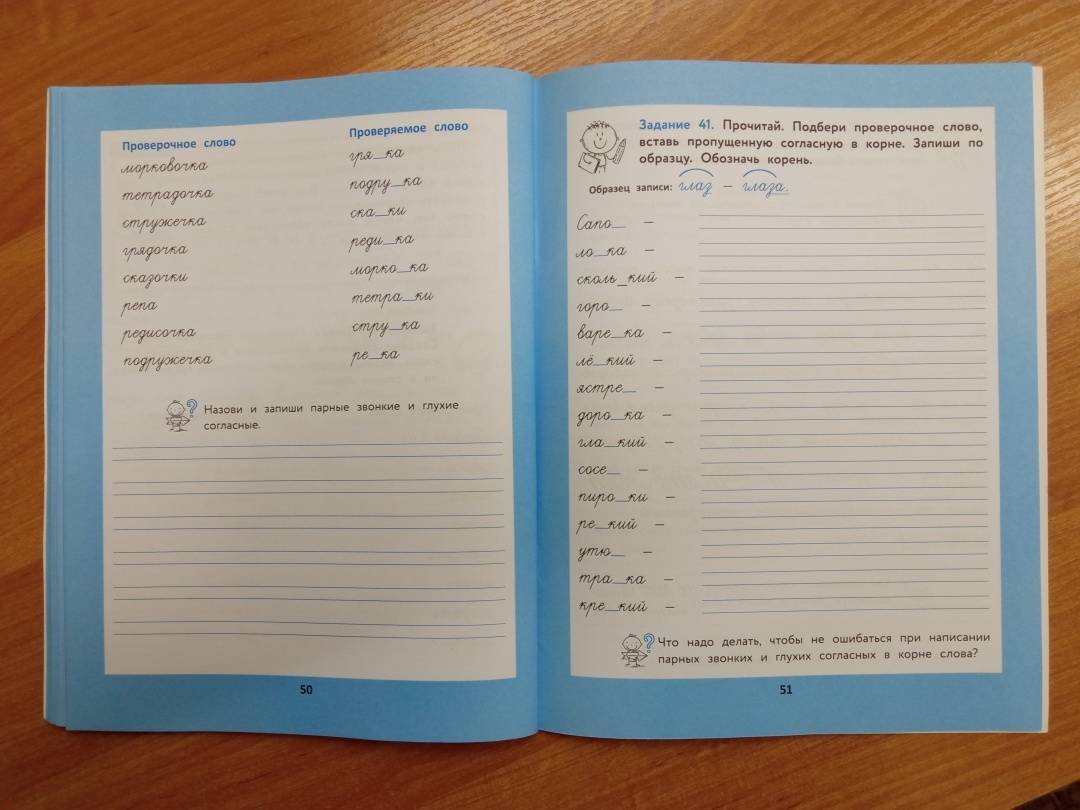 Проверочное слово
Проверяемое слово
морковочка
гря_ка
тетрадочка
подру_ка
стружечка
ска_ки
грядочка
реди_ка
сказочки
морко_ка
репа
тетра_ки
редисочка
стру_ка
подружечка
ре_ка
Назови и запиши парные звонкие и глухие
согласные.
50
Задание 41. Прочитай. Подбери проверочное слово,
вставь пропущенную согласную в корне. Запиши по
образцу. Обозначь корень.
Образец записи: глаз – глаза.
Сапо_ –
ло_ка –
сколь_кий –
горо_ –
варе_ка –
лё_кий –
ястре_ –
доро_ка –
гла_кий –
сосе_ –
пиро_ки –
ре_кий –
утю_ –
тра_ка –
кре_кий –
Что надо делать, чтобы не ошибаться при написании
парных звонких и глухих согласных в корне слова?
51